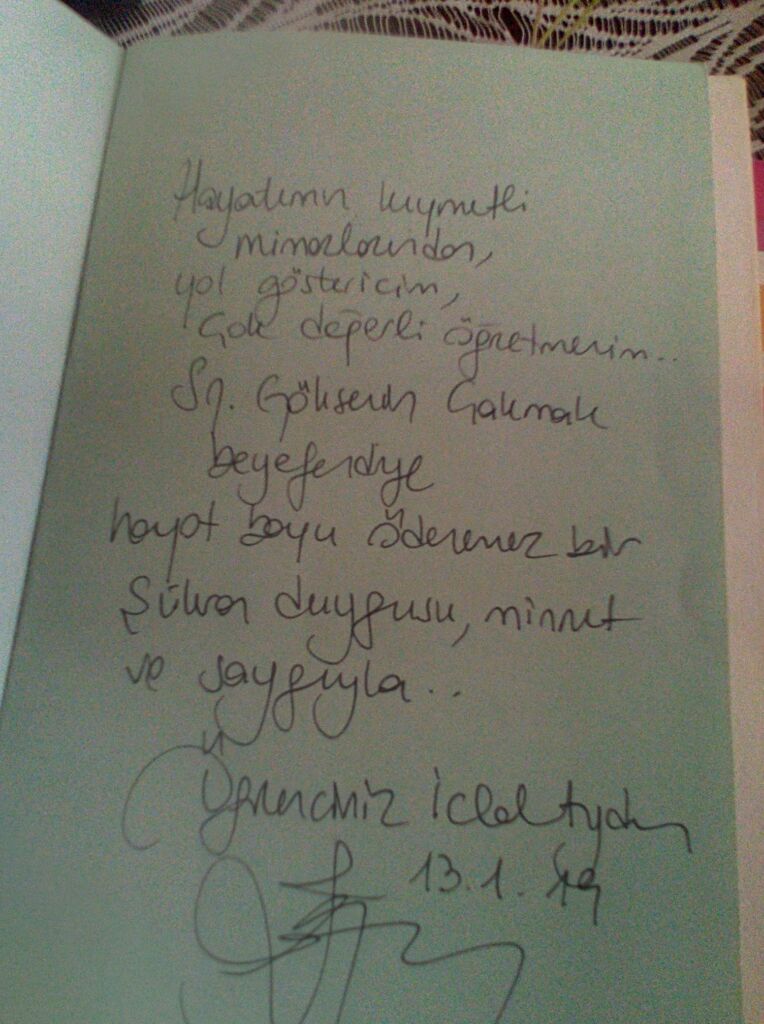 Hayatımın kıymetli
mimarlarından,
yol göstericim,
Çok değerli öğretmenim...
Sn. Göksenin Çakmak
beyefendiye
hayat boyu ödenemez bir
Şükran duygusu, minnet
ve saygıyla..
Öğrenciniz İclal Aydın
13.1.19